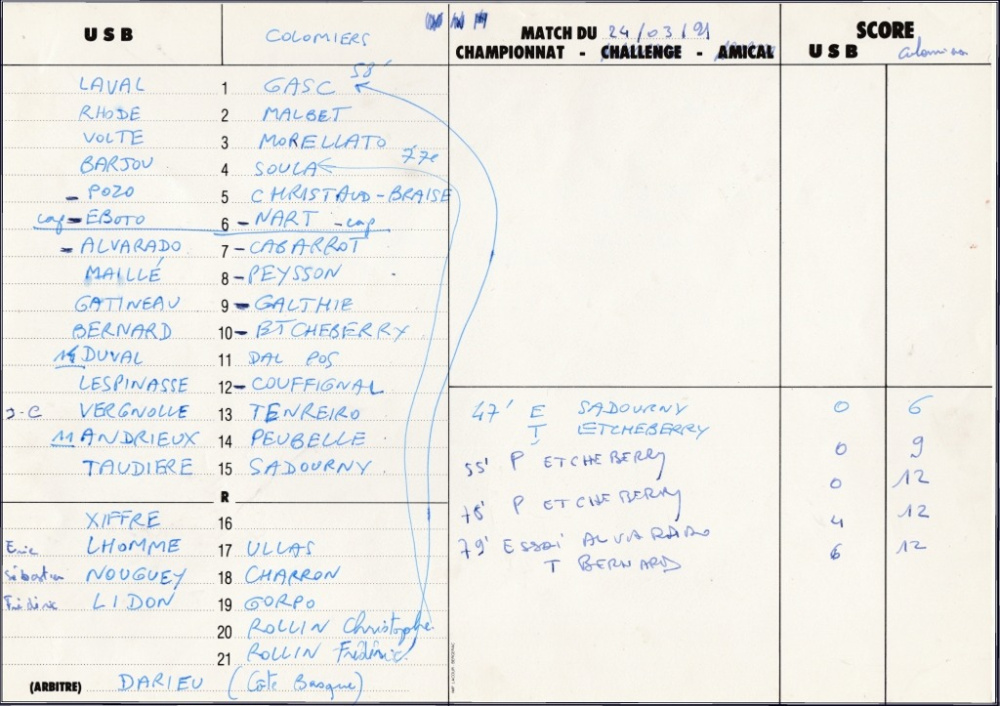 USB COLOMIERS
MATCH DU 24/03/91 SCORE
CHAMPIONNAT - CHALLENGE - AMICAL USB Colomiers
58'
LAVAL 1 GASC
RHODE 2 MALBET
VOLTE 3 MORELLATO
BARJOU 4 SOULA 77e
- POZO 5 CHRISTAUD-BRAISE
cap - EBOTO 6 - NART - cap
- ALVARADO 7 - CABARROT
MAILLÉ 8 - PEYSSON
GATINEAU 9 - GALTHIE
BERNARD 10 - ETCHEBERRY
14 DUVAL 11 DAL POS
LESPINASSE 12 - COUFFIGNAL
J-C VERGNOLLE 13 TENREIRO
11 ANDRIEUX 14 PEUBELLE
TAUDIERE 15 SADOURNY
R
XIFFRE 16
Eric LHOMME 17 ULLAS
Sébastien NOUGUEY 18 CHARRON
Frédéric LIDON 19 GORPO
20 ROLLIN Christophe
21 ROLLIN Frédéric
(ARBITRE) DARIEU (Côte Basque)
47' E SADOURNY 0 6
T ETCHEBERRY
55' P ETCHEBERRY 0 9
78' P ETCHEBERRY 0 12
79' ESSAI ALVARADO 4 12
T BERNARD 6 12